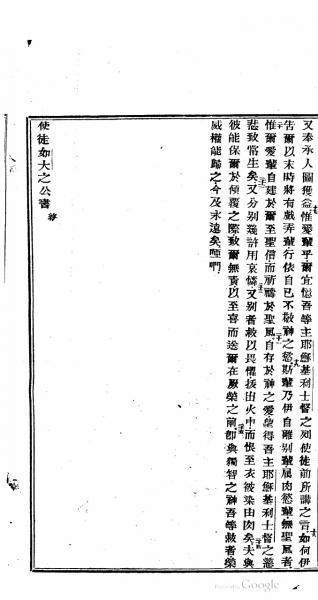 又奉承人圖獲益惟愛輩乎爾宜憶吾等主耶穌基利士督之列使徒前所講之言如何伊
告爾以末時將有戲弄輩行依自己不敬神之慾斯輩乃伊自離別輩屬肉慾輩無聖風者
惟爾愛輩自建於爾至聖信而祈禱於聖風自存於神之愛望得吾主耶穌基利士督之慈
悲致常生矣又分別幾許用哀憐又別者救以畏懼援由火中而恨至衣被染由肉矣夫與
彼能保爾於傾覆之際致爾無責以至喜而送爾在厥榮之前即與獨智之神吾等救者榮
威權能歸之今及永遠矣啞們
使徒如大之公書 終
Google